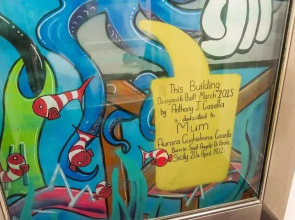 This Building
Designed & Built March 2015
by Anthony J Casella
is dedicated to
Mum
Aurora Guglielmina Casella
Born in Sant Angelo Di Brolo
Sicily 21st April 1922